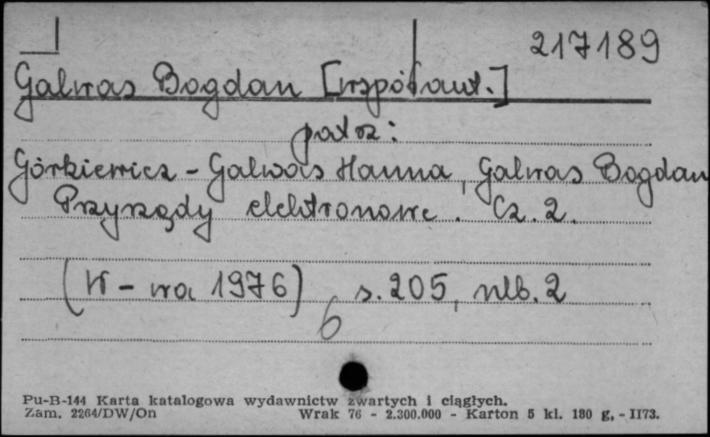 217189
Galwas Bogdan [współaut.]
patrz:
Górkiewicz-Galwas Hanna, Galwas Bogdan
Przyrządy elektronowe. Cz. 2.
(W-wa 1976) s. 205, nlb. 2
6
Pu-B-144 Karta katalogowa wydawnictw zwartych i ciągłych.
Zam. 2264/DW/On Wrak 76 - 2.300.000 - Karton 5 kl. 180 g, - II73.